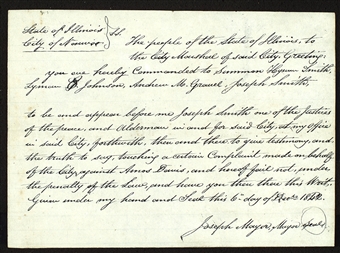 State of Illinois } ss.
City of Nauvoo }
The people of the State of Illinois, to
the City Marshal of said City. Greeting
you are hereby Commanded to Summon Hyrum Smith,
Lyman Johnson, Andrew M. Gravel, Joseph Smith,
to be and appear before me Joseph Smith one of the Justices
of the peace, and Alderman in and for said City, at my office
in said City, forthwith, then and there to give testimony, and
the truth to say, touching a certain Complaint made in behalf
of the City, against Amos Davis, and hereof fail not, under
the penalty of the Law, and have you then there this Writ.
Given under my hand and Seal this 6th day of
Joseph Mayor, Mayor Seal